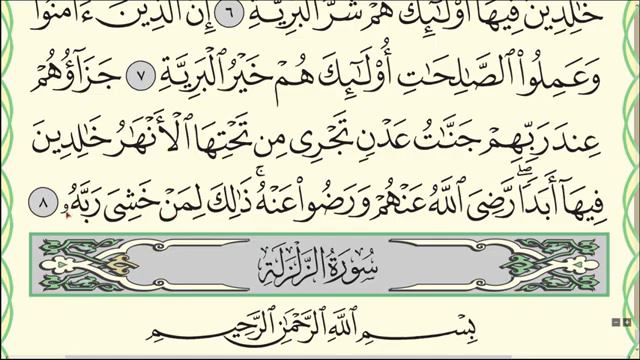 خَٰلِدِينَ فِيهَآ أُو۟لَٰٓئِكَ هُمْ شَرُّ ٱلْبَرِيَّةِ ٦ إِنَّ ٱلَّذِينَ ءَامَنُوا۟
وَعَمِلُوا۟ ٱلصَّٰلِحَٰتِ أُو۟لَٰٓئِكَ هُمْ خَيْرُ ٱلْبَرِيَّةِ ٧ جَزَآؤُهُمْ
عِندَ رَبِّهِمْ جَنَّٰتُ عَدْنٍ تَجْرِى مِن تَحْتِهَا ٱلْأَنْهَٰرُ خَٰلِدِينَ
فِيهَآ أَبَدًا ۖ رَّضِىَ ٱللَّهُ عَنْهُمْ وَرَضُوا۟ عَنْهُ ۚ ذَٰلِكَ لِمَنْ خَشِىَ رَبَّهُۥ ٨
سُورَةُ ٱلزَّلْزَلَةِ
بِسْمِ ٱللَّهِ ٱلرَّحْمَٰنِ ٱلرَّحِيمِ